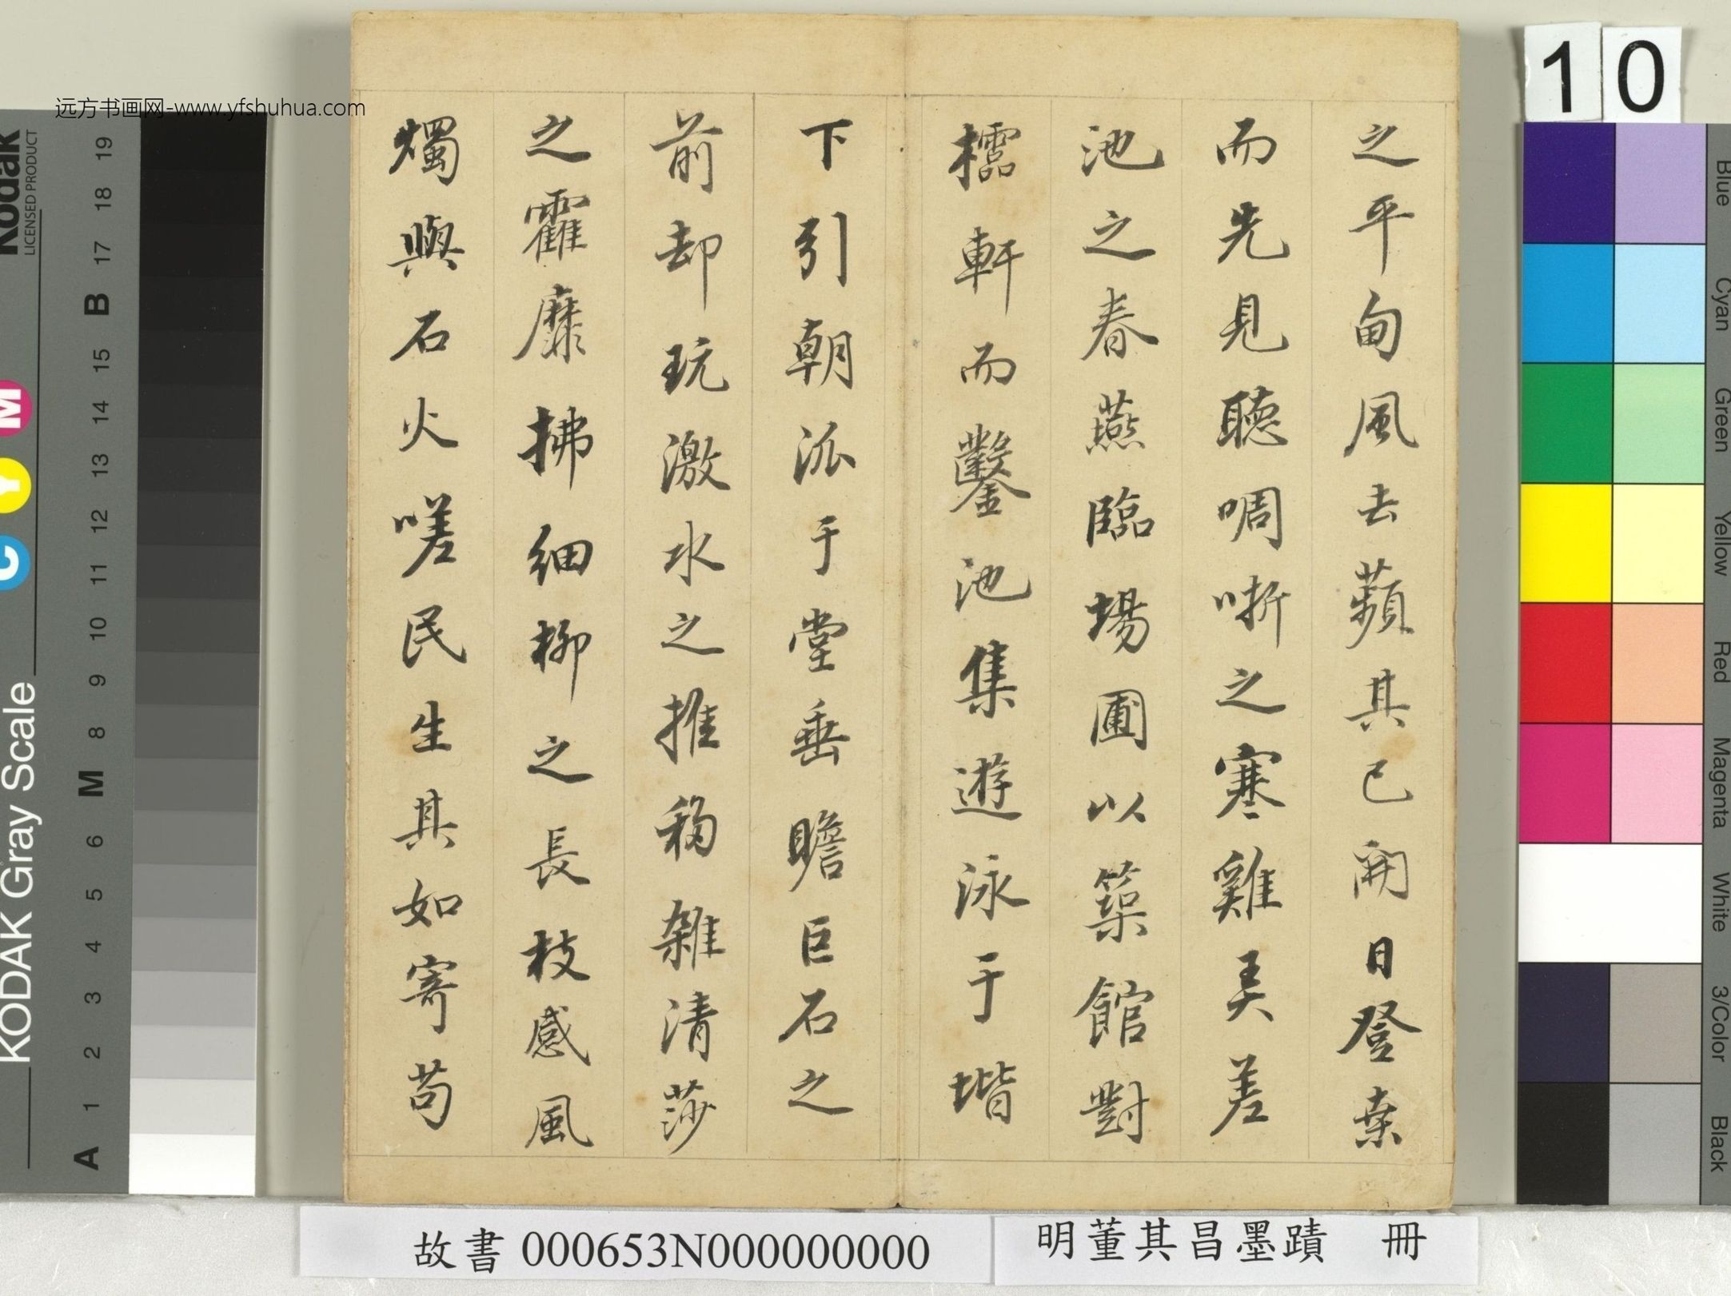 之平甸風去蘋其已開日登桒
而先見聽啁哳之寒雞美差
池之春燕臨場圃以築館對
櫺軒而鑿池集遊泳于堦
下引朝派于堂垂瞻巨石之
前却玩激水之推移雜清莎
之靃靡拂細柳之長枝感風
燭與石火嗟民生其如寄苟
故書 000653N000000000
明董其昌墨蹟 冊
10
远方书画网-www.yfshuhua.com
Kodak
LICENSED PRODUCT
KODAK Gray Scale
C Y M
A 1 2 3 4 5 6 M 8 9 10 11 12 13 14 15 B 17 18 19
Blue
Cyan
Green
Yellow
Red
Magenta
White
3/Color
Black